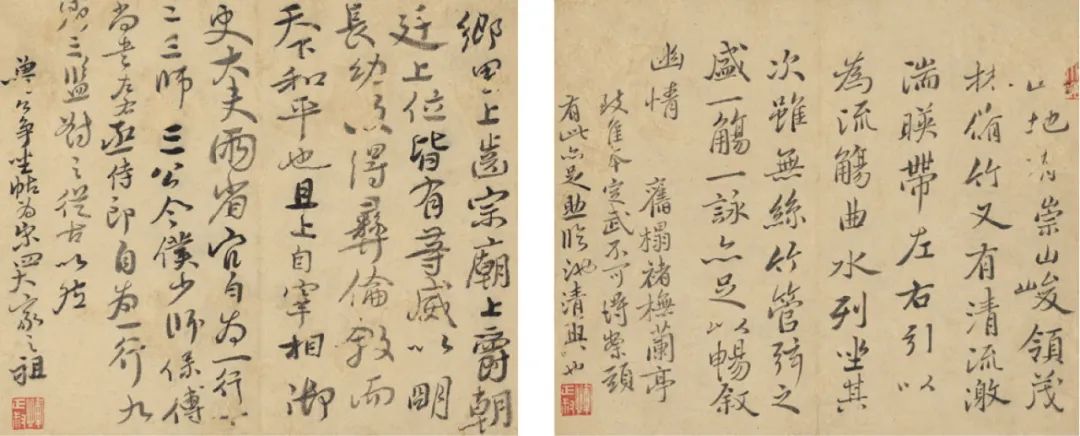 此地有崇山峻領茂
林脩竹又有清流激
湍暎帶左右引以
為流觴曲水列坐其
次雖無絲竹管弦之
盛一觴一詠亦足以暢敘
幽情
舊榻褚橅蘭亭
致佳本定武不可得案頭
有此亦足助臨池清興也
鄉里上齒宗廟上爵朝
廷上位皆有等威以明
長幼故得彝倫敘而
天下和平也且上自宰相御
史大夫兩省官自為一行
二三師三公令僕少師保傅
尚書左右丞侍郎自為一行九
卿三監對之從古以然
魯公爭坐帖為宋四大家之祖